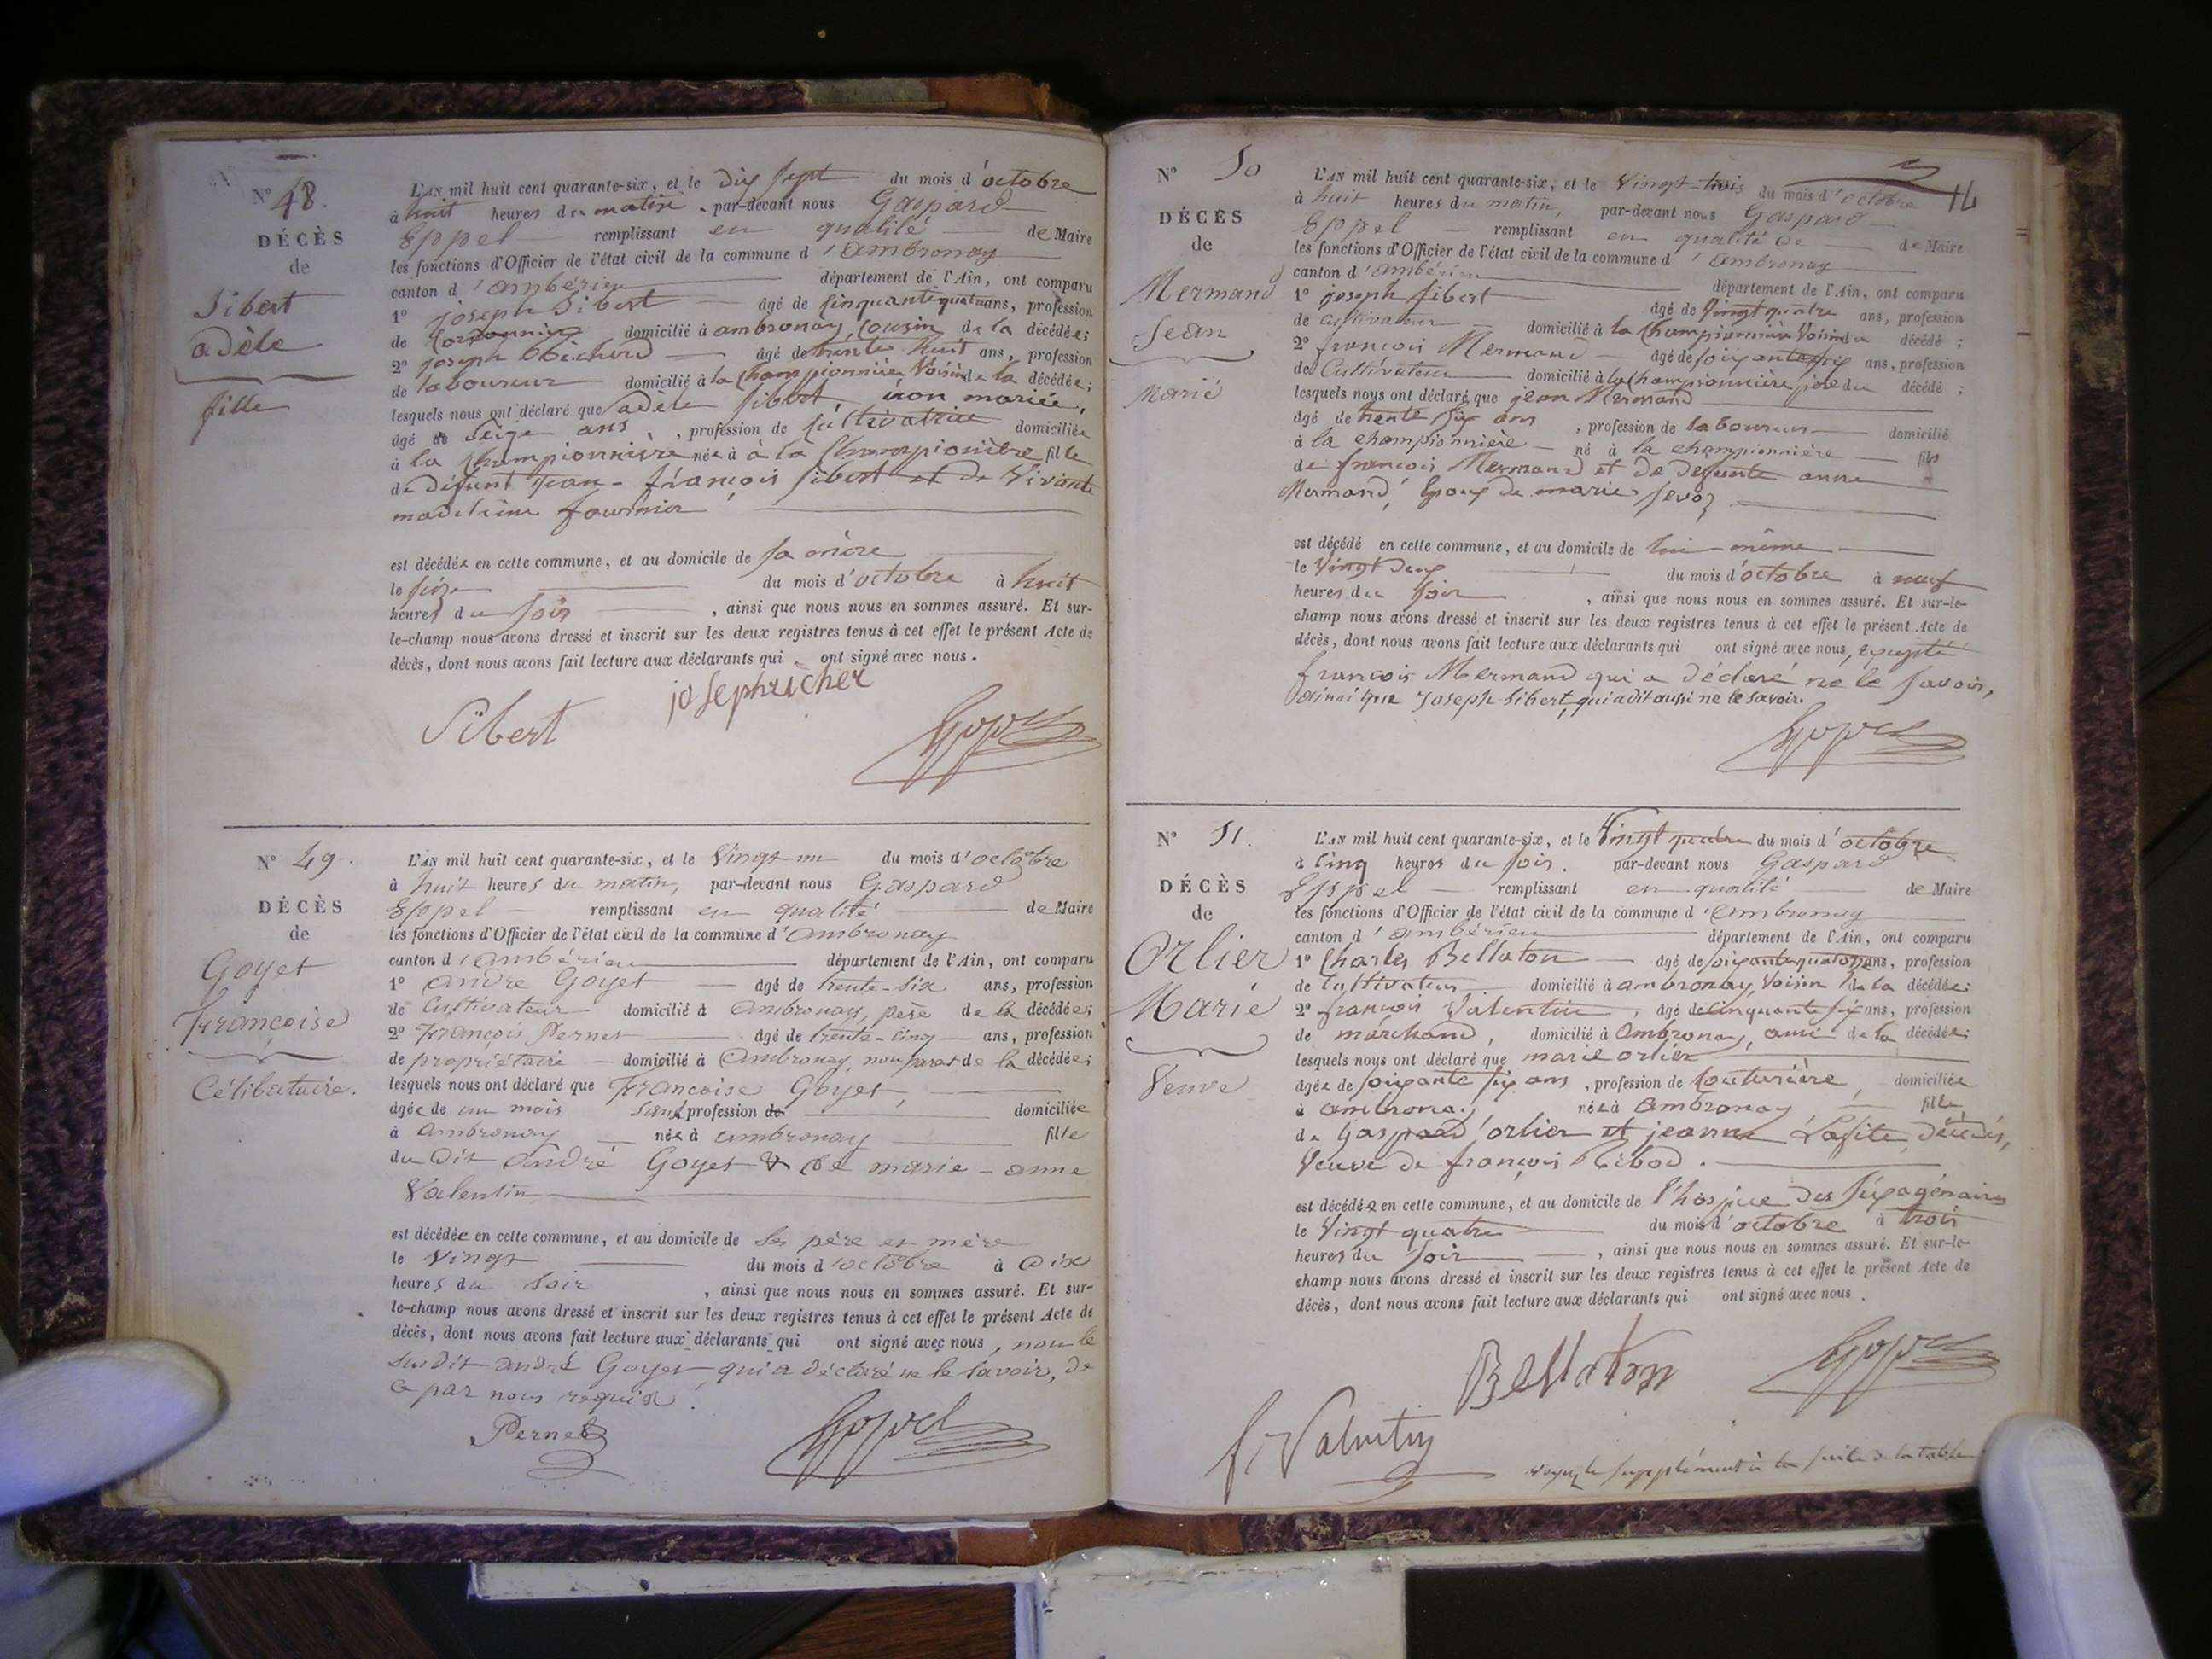 N° 48.
DÉCÈS
de
Sibert
adèle
fille
L'AN mil huit cent quarante-six, et le dix sept du mois d'octobre
à huit heures du matin, par-devant nous Gaspard
Eppel remplissant en qualité de Maire
les fonctions d'Officier de l'état civil de la commune d'ambronay
canton d'ambérieu département de l'Ain, ont comparu
1° joseph Sibert âgé de Cinquante quatre ans, profession
de Cordonnier domicilié à ambronay, Cousin de la décédée;
2° joseph Richerd âgé de trente huit ans, profession
de laboureur domicilié à la Championnière Voisin de la décédée;
lesquels nous ont déclaré que adèle Sibert, non mariée,
âgé de Seize ans, profession de Cultivatrice domiciliée
à la Championnière née à à la Championière fille
de défunt jean-françois Sibert et de Vivante
madeleine fournier
est décédée en cette commune, et au domicile de sa mère
le seize du mois d'octobre à huit
heures du soir, ainsi que nous nous en sommes assuré. Et sur-
le-champ nous avons dressé et inscrit sur les deux registres tenus à cet effet le présent Acte de
décès, dont nous avons fait lecture aux déclarants qui ont signé avec nous.
Sibert
josephricher
Eppel
N° 49.
DÉCÈS
de
Goyet
Françoise
Célibataire.
L'AN mil huit cent quarante-six, et le Vingt-un du mois d'octobre
à huit heures du matin, par-devant nous Gaspard
Eppel remplissant en qualité de Maire
les fonctions d'Officier de l'état civil de la commune d'ambronay
canton d'ambérieu département de l'Ain, ont comparu
1° andré Goyet âgé de trente-six ans, profession
de Cultivateur domicilié à ambronay, père de la décédée;
2° François Pernet âgé de trente-cinq ans, profession
de propriétaire domicilié à ambronay, non parent de la décédée;
lesquels nous ont déclaré que Françoise Goyet,
âgée de un mois sans profession de domiciliée
à ambronay née à ambronay fille
du dit andré Goyet & de marie-anne
Valentin
est décédée en cette commune, et au domicile de ses père et mère
le vingt du mois d'octobre à dix
heures du soir, ainsi que nous nous en sommes assuré. Et sur-
le-champ nous avons dressé et inscrit sur les deux registres tenus à cet effet le présent Acte de
décès, dont nous avons fait lecture aux déclarants qui ont signé avec nous, non le
susdit andré Goyet qui a déclaré ne le savoir, de
ce par nous requis.
Pernet
Eppel
16
N° 50
DÉCÈS
de
Mermand
Jean
Marié
L'AN mil huit cent quarante-six, et le Vingt-trois du mois d'octobre
à huit heures du matin, par-devant nous Gaspard
Eppel remplissant en qualité de de Maire
les fonctions d'Officier de l'état civil de la commune d'ambronay
canton d'ambérieu département de l'Ain, ont comparu
1° joseph Sibert âgé de Vingt quatre ans, profession
de Cultivateur domicilié à la Championnière Voisin du décédé;
2° françois Mermand âgé de soixante six ans, profession
de Cultivateur domicilié à la Championnière père du décédé;
lesquels nous ont déclaré que jean Mermand
âgé de trente six ans, profession de laboureur domicilié
à la championnière né à la championnière fils
de françois Mermand et de defunte anne
Mermand, Epoux de marie Sevoz
est décédé en cette commune, et au domicile de lui-même
le Vingt deux du mois d'octobre à neuf
heures du soir, ainsi que nous nous en sommes assuré. Et sur-le-
champ nous avons dressé et inscrit sur les deux registres tenus à cet effet le présent Acte de
décès, dont nous avons fait lecture aux déclarants qui ont signé avec nous, excepté
françois Mermand qui a déclaré ne le savoir,
ainsi que Joseph Sibert, qui a dit aussi ne le savoir.
Eppel
N° 51.
DÉCÈS
de
Orlier
Marie
Veuve
L'AN mil huit cent quarante-six, et le Vingt quatre du mois d'octobre
à cinq heures du soir. par-devant nous Gaspard
Eppel remplissant en qualité de Maire
les fonctions d'Officier de l'état civil de la commune d'ambronay
canton d'ambérieu département de l'Ain, ont comparu
1° Charles Bellaton âgé de soixante quatorze ans, profession
de Cultivateur domicilié à ambronay, Voisin de la décédée;
2° françois Valentin, âgé de cinquante six ans, profession
de marchand, domicilié à Ambronay, ami de la décédée;
lesquels nous ont déclaré que marie orlier
âgée de soixante six ans, profession de Couturière, domiciliée
à ambronay née à ambronay fille
de Gaspard orlier et jeanne Lafite, décédés,
Veuve de françois Ribod.
est décédée en cette commune, et au domicile de l'hospice des Sexagénaires
le Vingt quatre du mois d'octobre à trois
heures du soir, ainsi que nous nous en sommes assuré. Et sur-le-
champ nous avons dressé et inscrit sur les deux registres tenus à cet effet le présent Acte de
décès, dont nous avons fait lecture aux déclarants qui ont signé avec nous.
Bellaton
Eppel
f. Valentin
voyez le supplément à la suite de la table